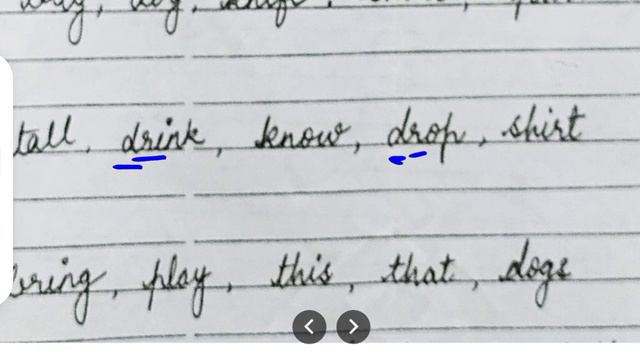 tall, drink, know, drop, shirt
bring, play, this, that, dogs